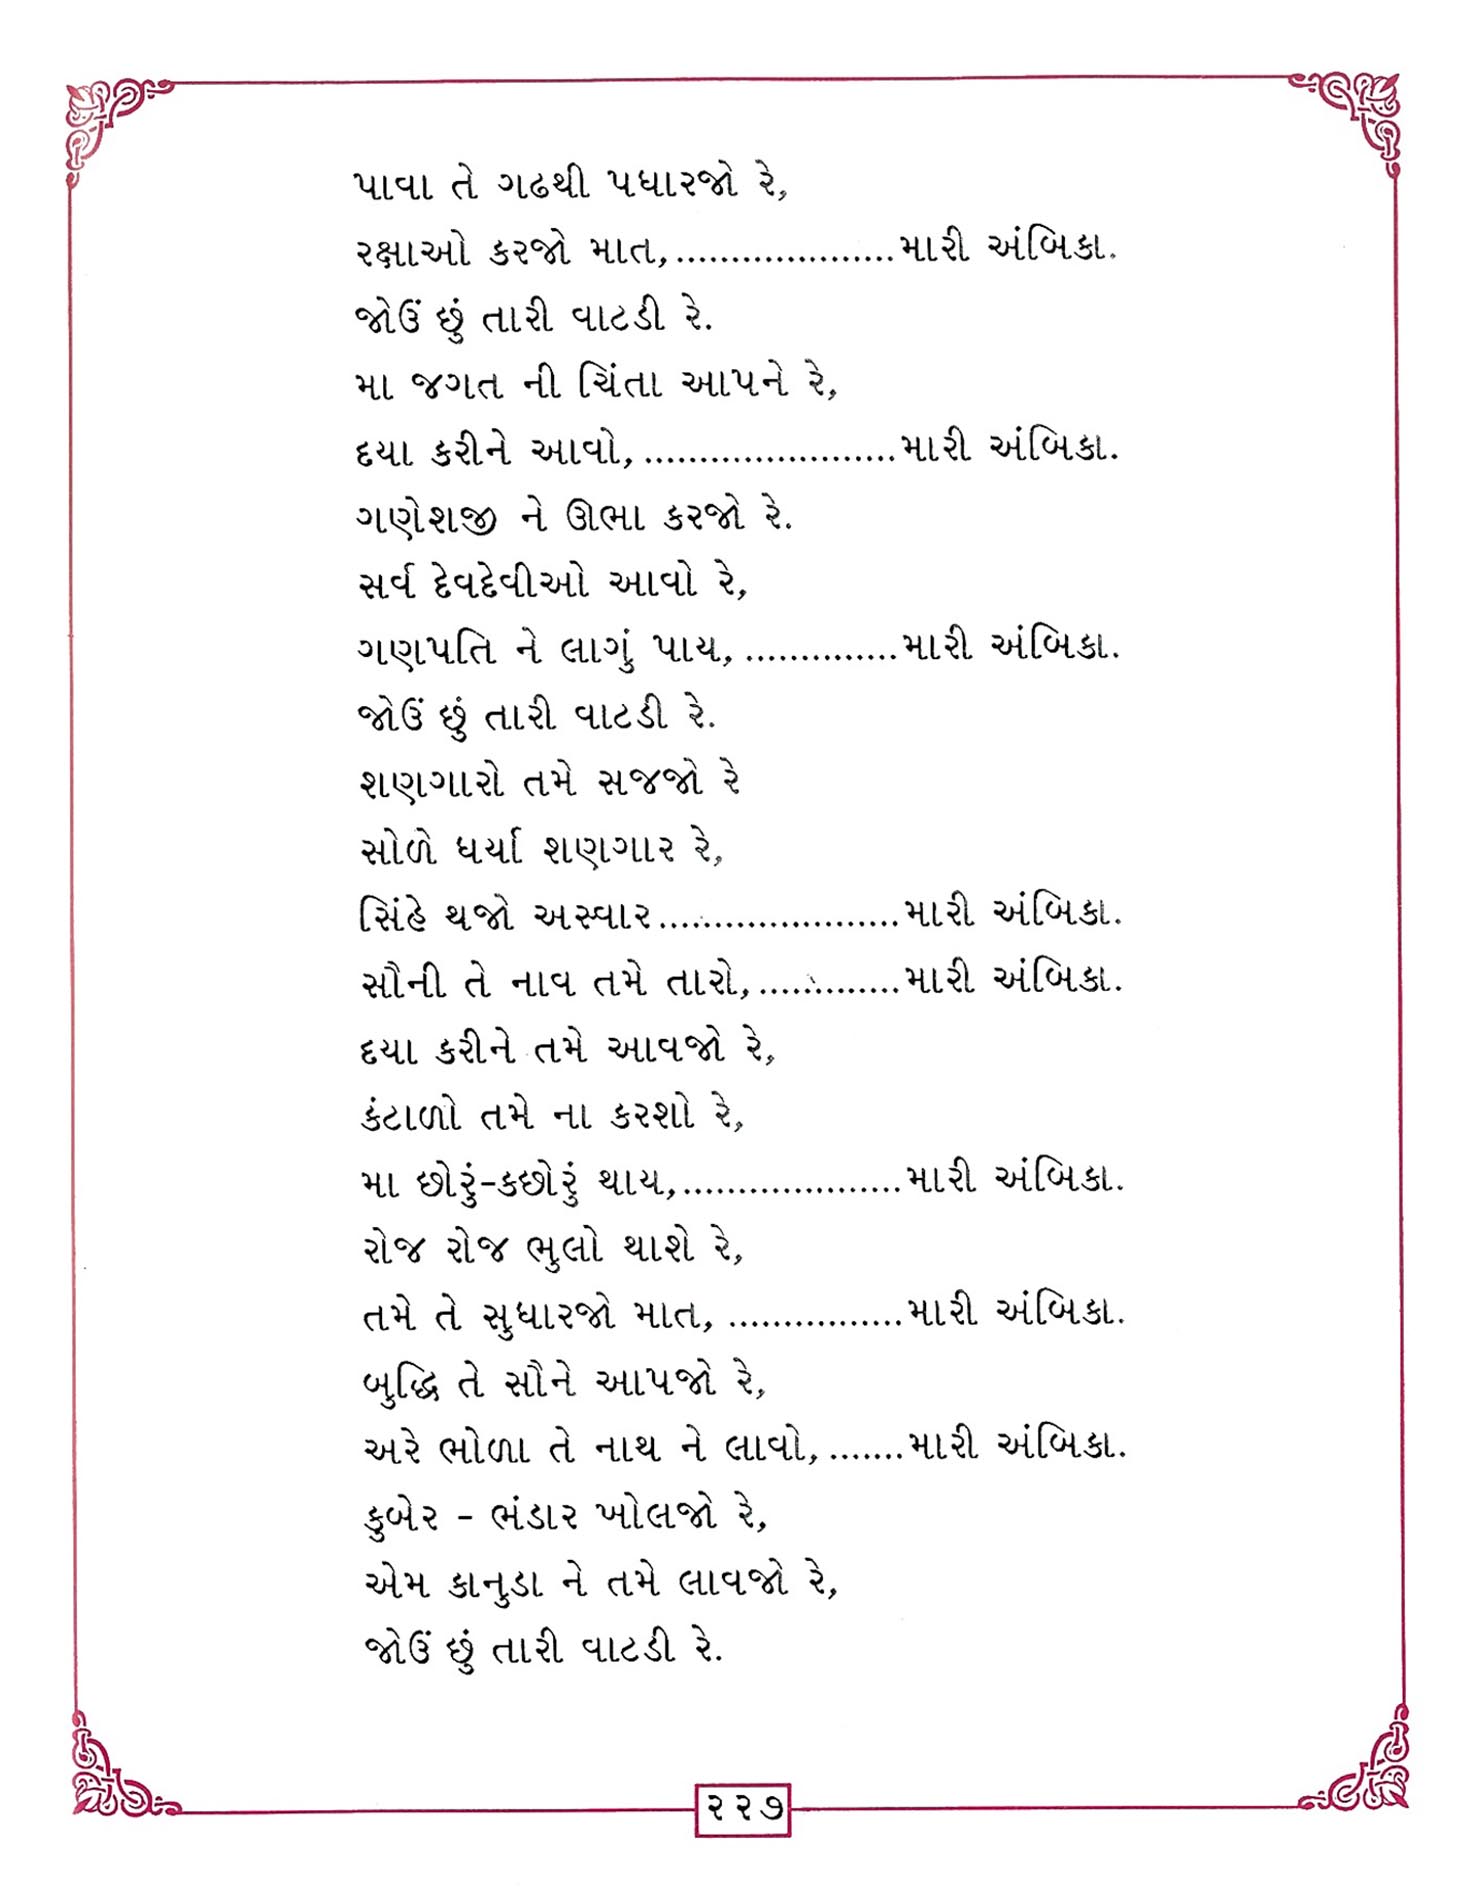 પાવા તે ગઢથી પધારજો રે,
રક્ષાઓ કરજો માત,....................મારી અંબિકા.
જોઉં છું તારી વાટડી રે.
મા જગત ની ચિંતા આપને રે,
દયા કરીને આવો,.......................મારી અંબિકા.
ગણેશજી ને ઊભા કરજો રે.
સર્વ દેવદેવીઓ આવો રે,
ગણપતિ ને લાગું પાય,..............મારી અંબિકા.
જોઉં છું તારી વાટડી રે.
શણગારો તમે સજજો રે
સોળે ધર્યા શણગાર રે,
સિંહે થજો અસ્વાર......................મારી અંબિકા.
સૌની તે નાવ તમે તારો,.............મારી અંબિકા.
દયા કરીને તમે આવજો રે,
કંટાળો તમે ના કરશો રે,
મા છોરું-કછોરું થાય,....................મારી અંબિકા.
રોજ રોજ ભુલો થાશે રે,
તમે તે સુધારજો માત,................મારી અંબિકા.
બુદ્ધિ તે સૌને આપજો રે,
અરે ભોળા તે નાથ ને લાવો,.......મારી અંબિકા.
કુબેર - ભંડાર ખોલજો રે,
એમ કાનુડા ને તમે લાવજો રે,
જોઉં છું તારી વાટડી રે.
૨૨૭